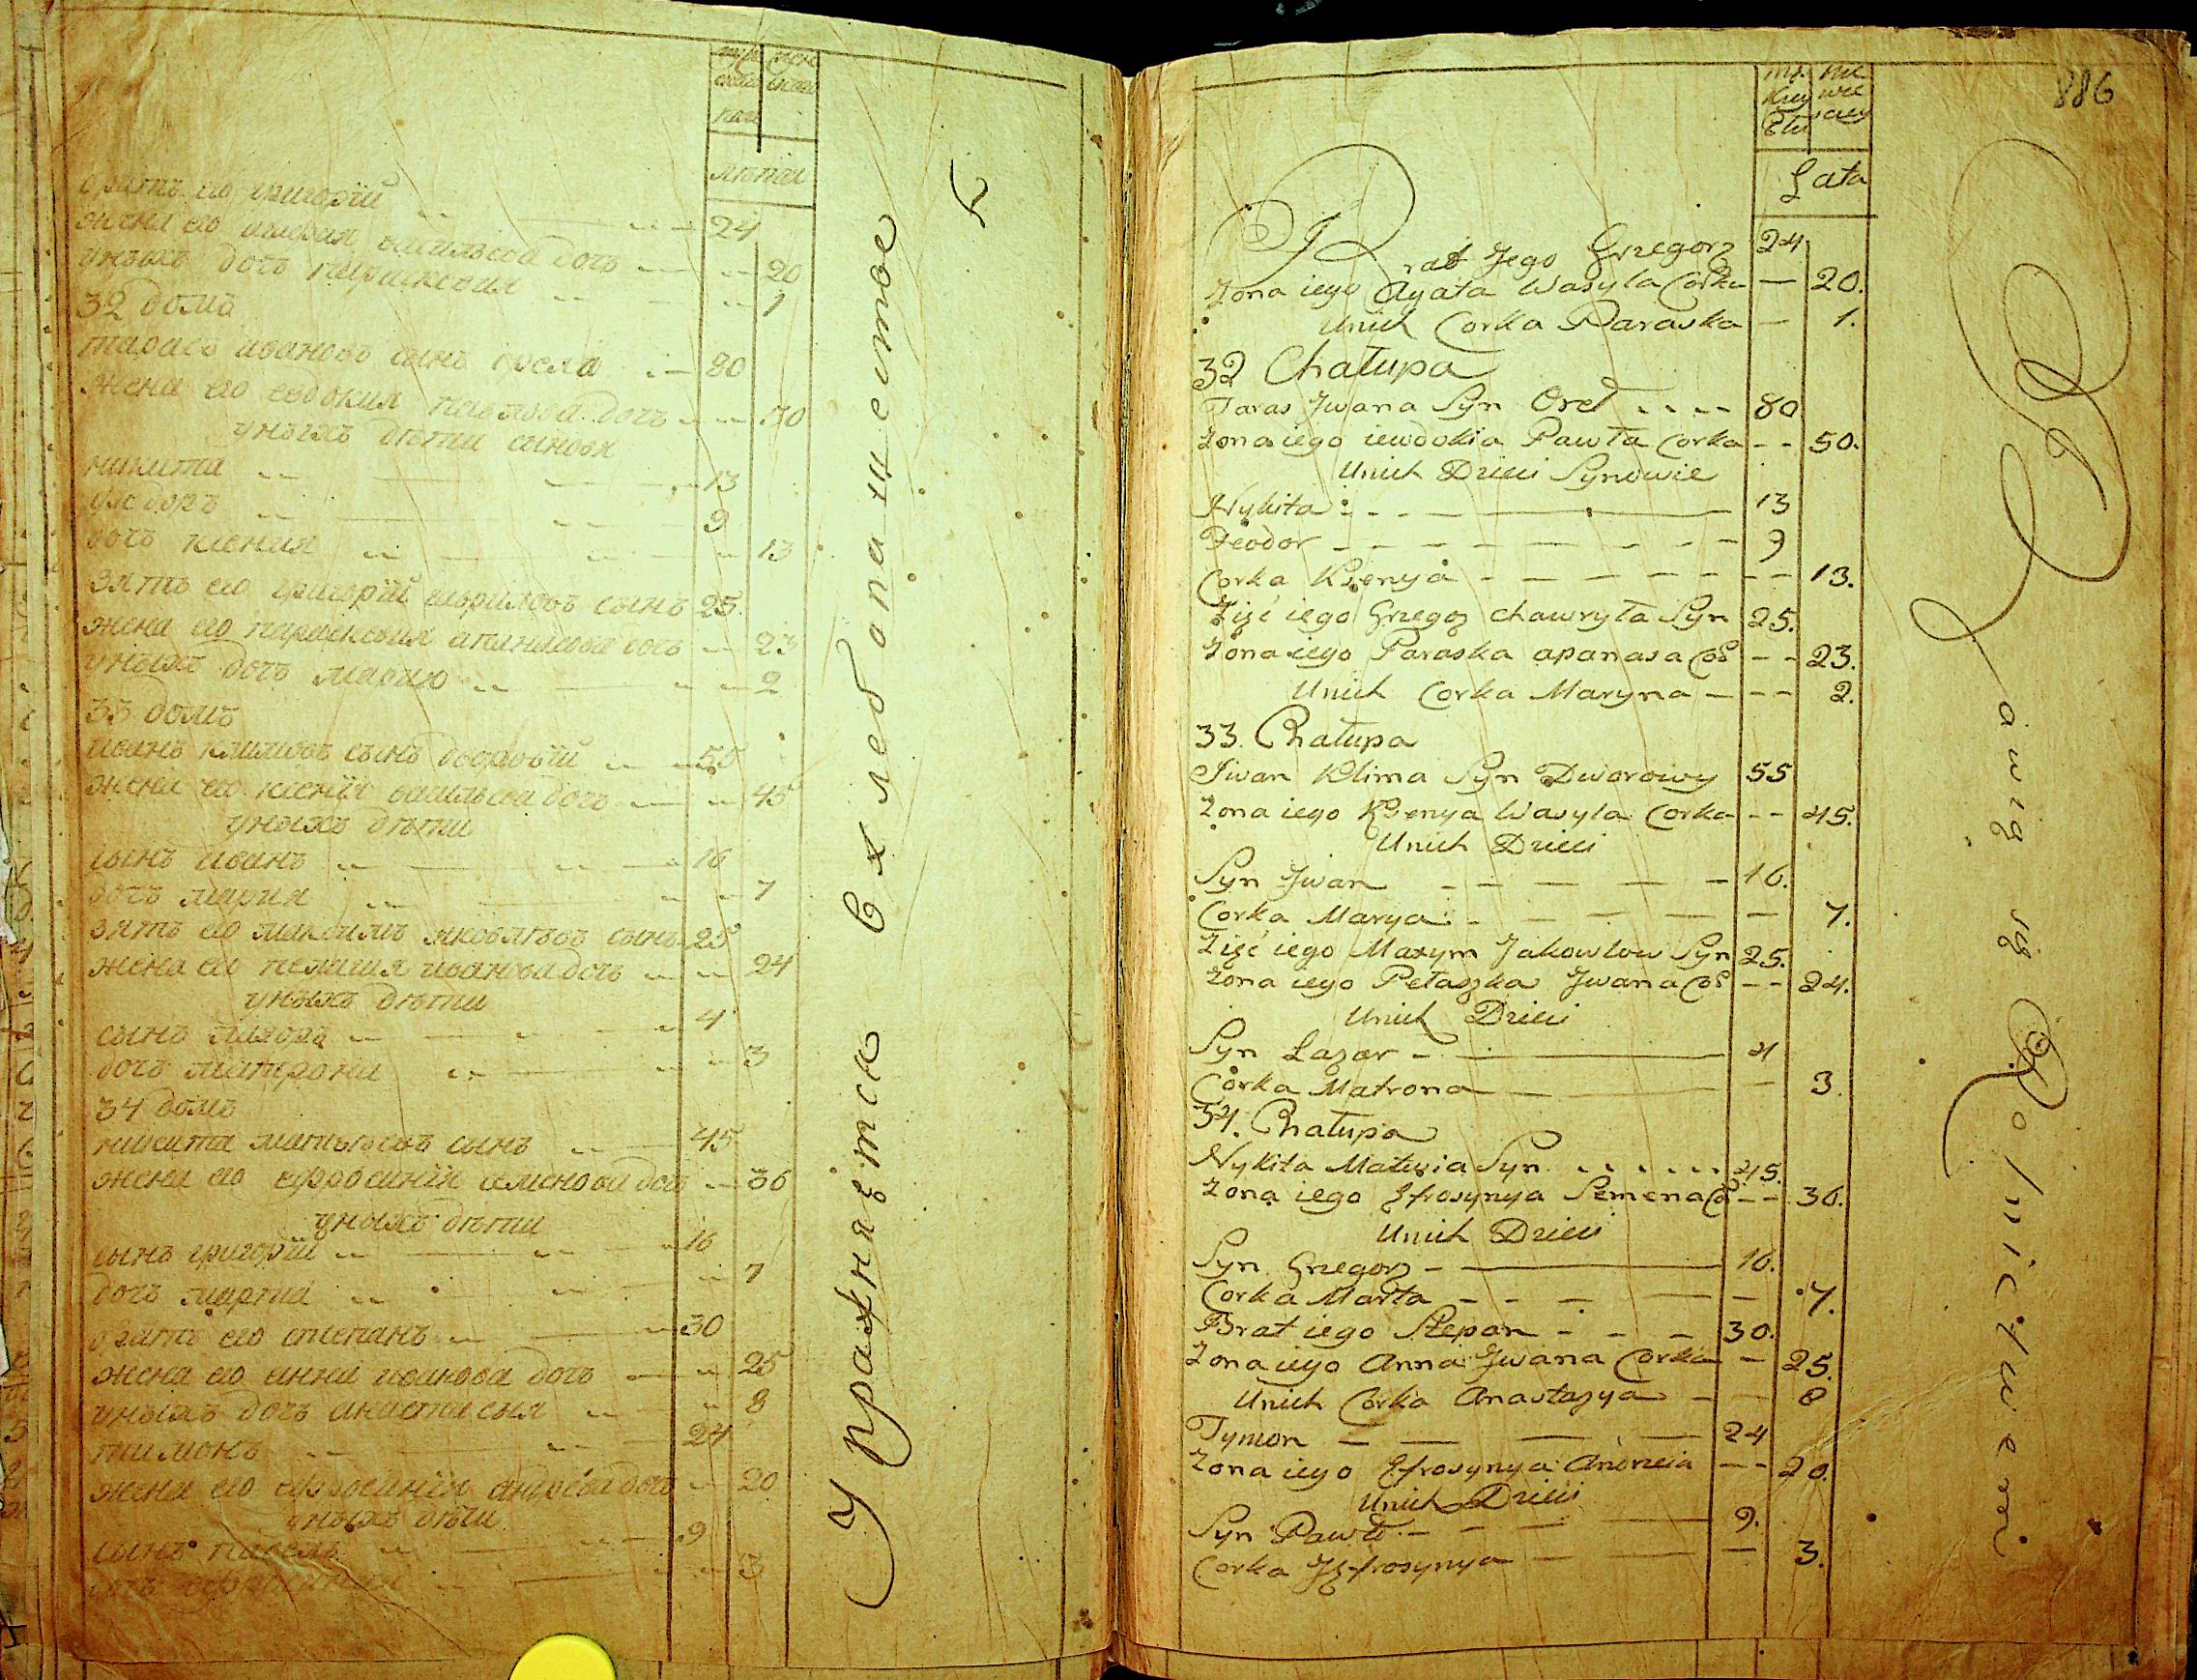 лѣта
братъ его григорїй 24
жена его агафия васильева дочь 20
унихъ дочь параскевия 1
32 домъ
тарасъ ивановъ сынъ 80
жена его евдокия павлова дочь 50
унихъ дѣти синовя
никита 13
феодоръ 9
дочь ксения 13
зять его григорїй гавриловъ сынъ 25
жена его параскевия апанасова дочь 23
унихъ дочь 2
33 домъ
иванъ климовъ сынъ дворовїй 55
жена его ксенїя васильева дочь 45
унихъ дѣти
сынъ иванъ 16
дочь мария 7
зять его максимъ яковлевъ сынъ 25
жена его пелагия иванова дочь 24
унихъ дѣти
сынъ 4
дочь матрона 3
34 домъ
никита матвѣевъ сынъ 45
жена его ефросинїя семенова дочь 36
унихъ дѣти
сынъ григорїй 16
дочь марта 7
братъ его степанъ 30
жена его анна иванова дочь 25
унихъ дочь анастасия 8
тимонъ 24
жена его ефросинїя андреева дочь 20
унихъ дѣти
сынъ павелъ 9
дочь 3
Упражняѣтся в хлебопашестве
886
Lata
Brat Jego Grzegorz 24
Żona iego Agata Wasyla Corka 20.
Unich Corka Paraska 1.
32 Chałupa
Taras Jwana Syn Oreł 80
Żona iego iewdokia Pawła Corka 50.
Unich Dzieci Synowie
Nykita 13
Feodor 9
Corka Ksenya 13.
Zięć iego Grzegoz chawryła Syn 25.
Żona iego Paraska apanasa Co 23.
Unich Corka Maryna 2.
33. Chałupa
Jwan Klima Syn Dworowy 55
Żona iego Ksenya Wasyla Corka 45.
Unich Dzieci
Syn Jwan 16.
Corka Marya 7.
Zięć iego Maxym Jakowlow Syn 25.
Żona iego Pełaszka Jwana Co 24.
Unich Dzieci
Syn Łazar 4
Corka Matrona 3.
34. Chałupa
Nykita Matwia Syn 45.
Żona iego Efrosynya Semena Co 36.
Unich Dzieci
Syn Grzegorz 16.
Corka Marta 7.
Brat iego Stepan 30.
Żona iego Anna Jwana Corka 25.
Unich Corka Anastazya 8
Tymon 24
Żona iego Efrosynya Andreia 20.
Unich Dzieci
Syn Paweł 9.
Corka Jefrosynya 3.
Bawią się Rolnictwem